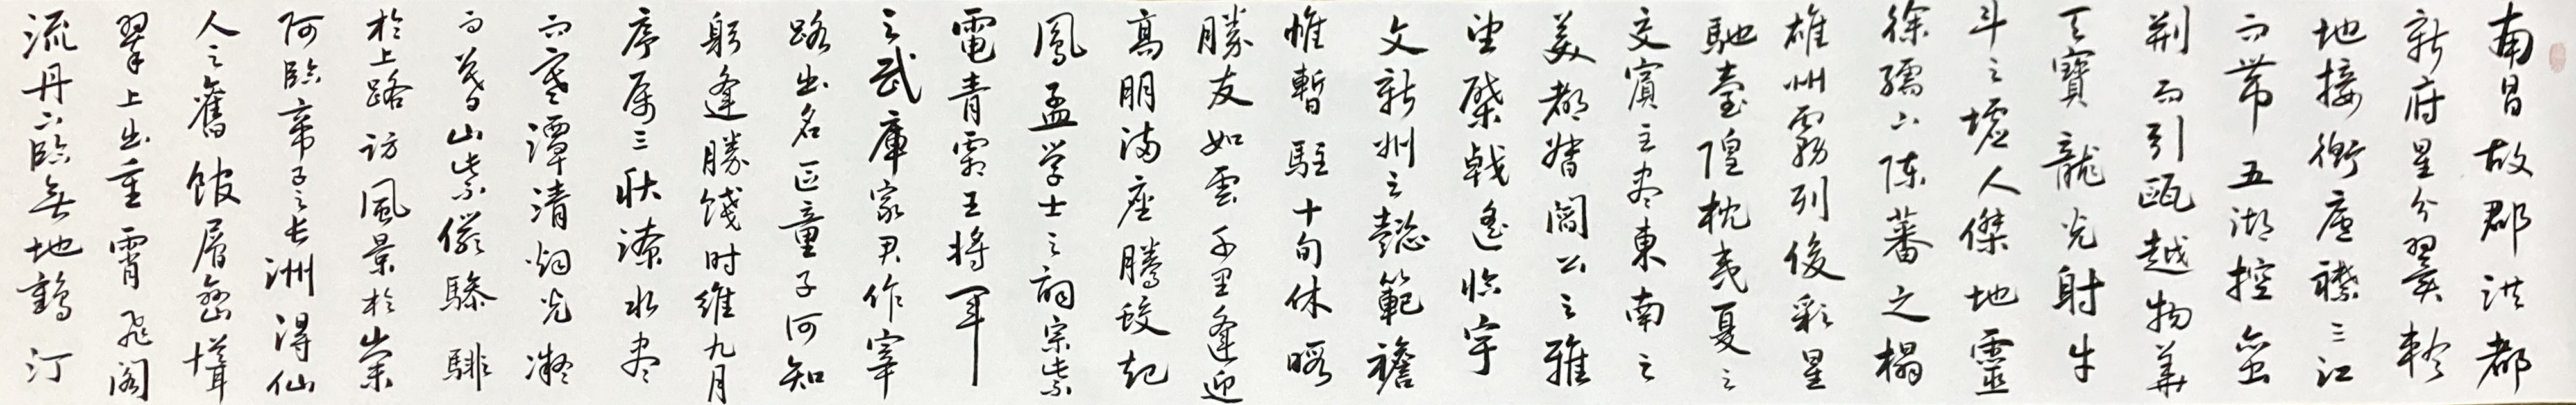 南昌故郡洪都
新府星分翼軫
地接衡廬襟三江
而帶五湖控蠻
荆而引甌越物華
天寶龍光射牛
斗之墟人傑地靈
徐孺下陳蕃之榻
雄州霧列俊彩星
馳臺隍枕夷夏之
交賓主尽東南之
美都督閻公之雅
望棨戟遙臨宇
文新州之懿範襜
帷暫駐十旬休暇
勝友如雲千里逢迎
高朋滿座騰蛟起
鳳孟学士之詞宗紫
電青霜王將軍
之武庫家君作宰
路出名區童子何知
躬逢勝餞时維九月
序属三秋潦水尽
而寒潭清烟光凝
而暮山紫儼驂騑
於上路訪風景於崇
阿臨帝子之長洲得仙
人之舊館層巒聳
翠上出重霄飛閣
流丹下臨無地鶴汀